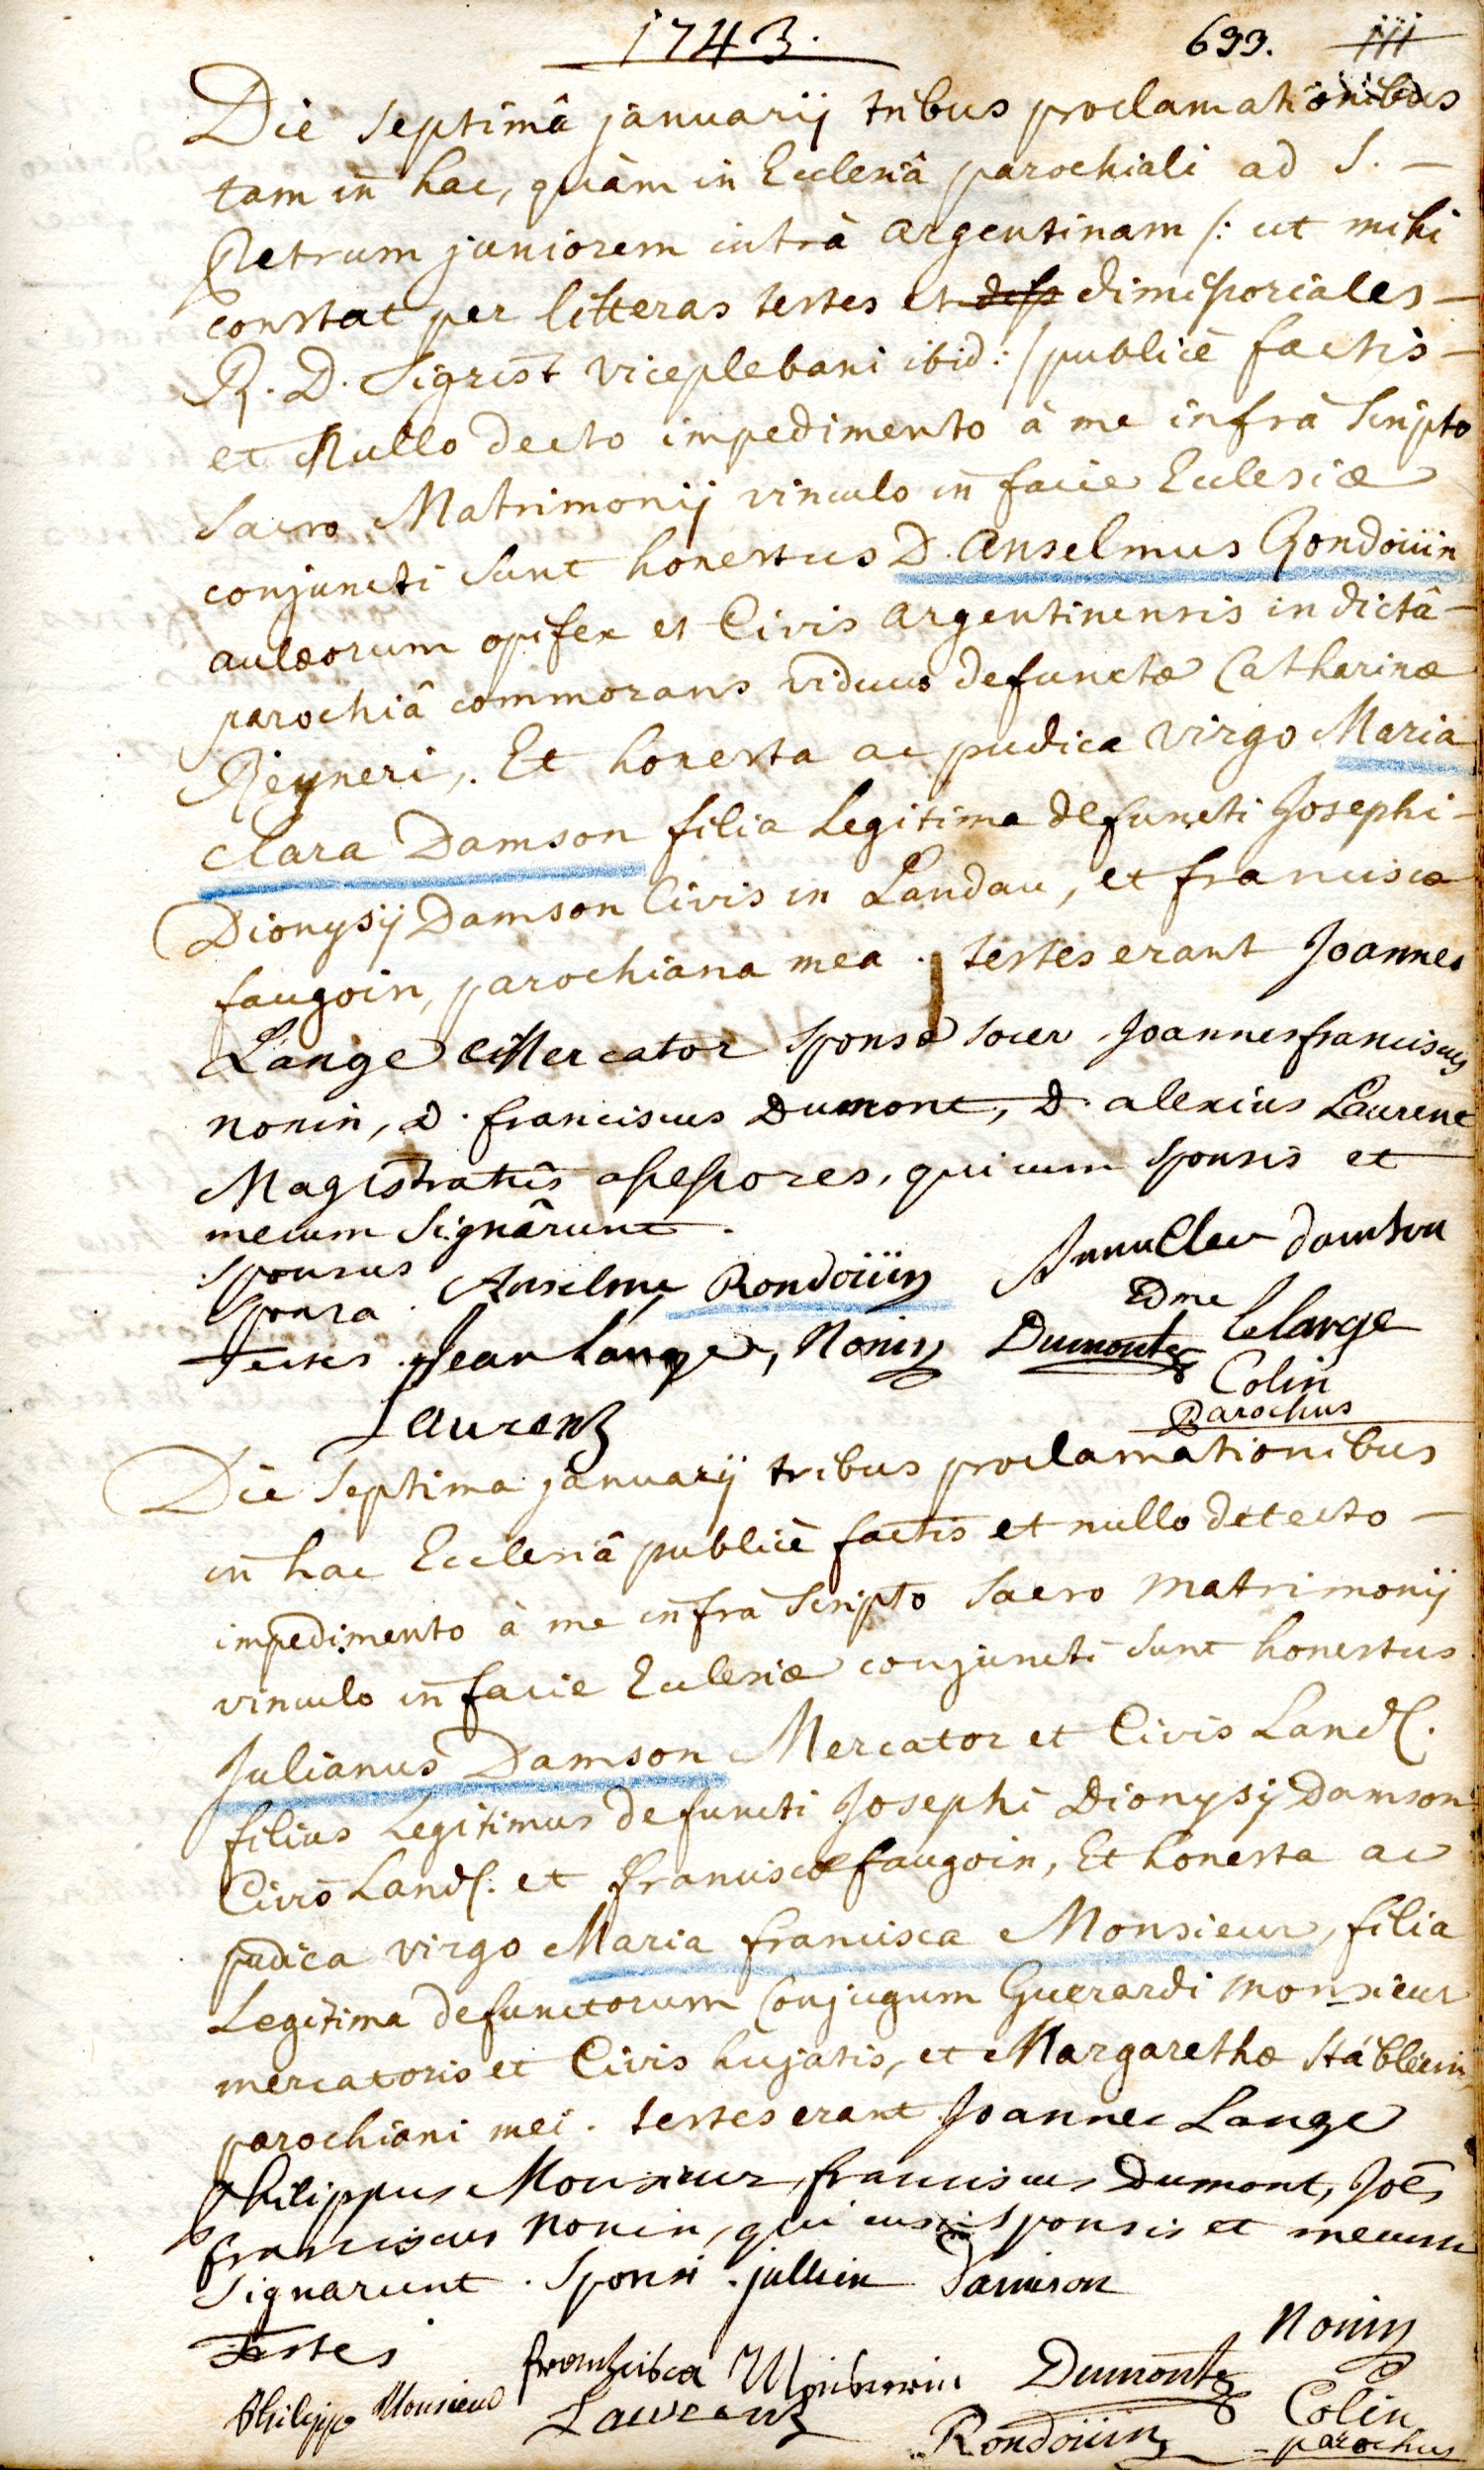 1743.
693. iii
Die septimâ januarij tribus proclamationibus
tam in hac, quàm in Ecclesiâ parochiali ad S. –
Petrum juniorem intrà argentinam /: ut mihi
constat per litteras testes et dimissoriales –
R. D. Sigrist viceplebani ibid: / publicè factis –
et Nullo decto impedimento à me infrà scripto
sacro Matrimonij vinculo in facie Ecclesiæ
conjuncti sunt honestus D. Anselmus Rondoüin
aulæorum opifex et Civis argentinensis in dictâ –
parochiâ commorans viduus defunctæ Catharinæ
Reyneri, . Et honesta ac pudica virgo Maria
Clara Damson filia Legitima defuncti Josephi –
Dionysij Damson Civis in Landau, et franciscæ
faugoin, parochiana mea . testes erant Joannes
Lange Mercator sponsæ socer Joannes franciscus
nonin, D. franciscus Dumont, D. alexius Laurent
Magistratûs assessores, qui cum sponsis et
mecum signârunt .
sponsus Anselme Rondoüin
sponsa . Damson
testes . Jean Lange, Nonin Dumont Edme lelarge
Laurent
Colin
Parochus
Die septima januarij tribus proclamationibus
in hac Ecclesiâ publicè factis et nullo detecto –
impedimento à me infrà scripto sacro matrimonij
vinculo in facie Ecclesiæ conjuncti sunt honestus
Julianus Damson Mercator et Civis Land.
filius Legitimus defuncti Josephi Dionysij Damson
Civis Land. et franciscæ faugoin, Et honesta ac
pudica virgo Maria francisca Monsieur, filia
Legitima defunctorum Conjugum Guerardi monsieur
mercatoris et Civis hujatis, et Margarethæ Stäblein
parochiani mei . testes erant Joannes Lange
Philippus Monsieur, franciscus Dumont, Joês
franciscus nonin, qui cum sponsis et mecum
signarunt . Sponsi . jullien Damson
testes
franzisca
Nonin
Philipp Monsieur Laurent Dumont
Rondoüin
Colin
parochus